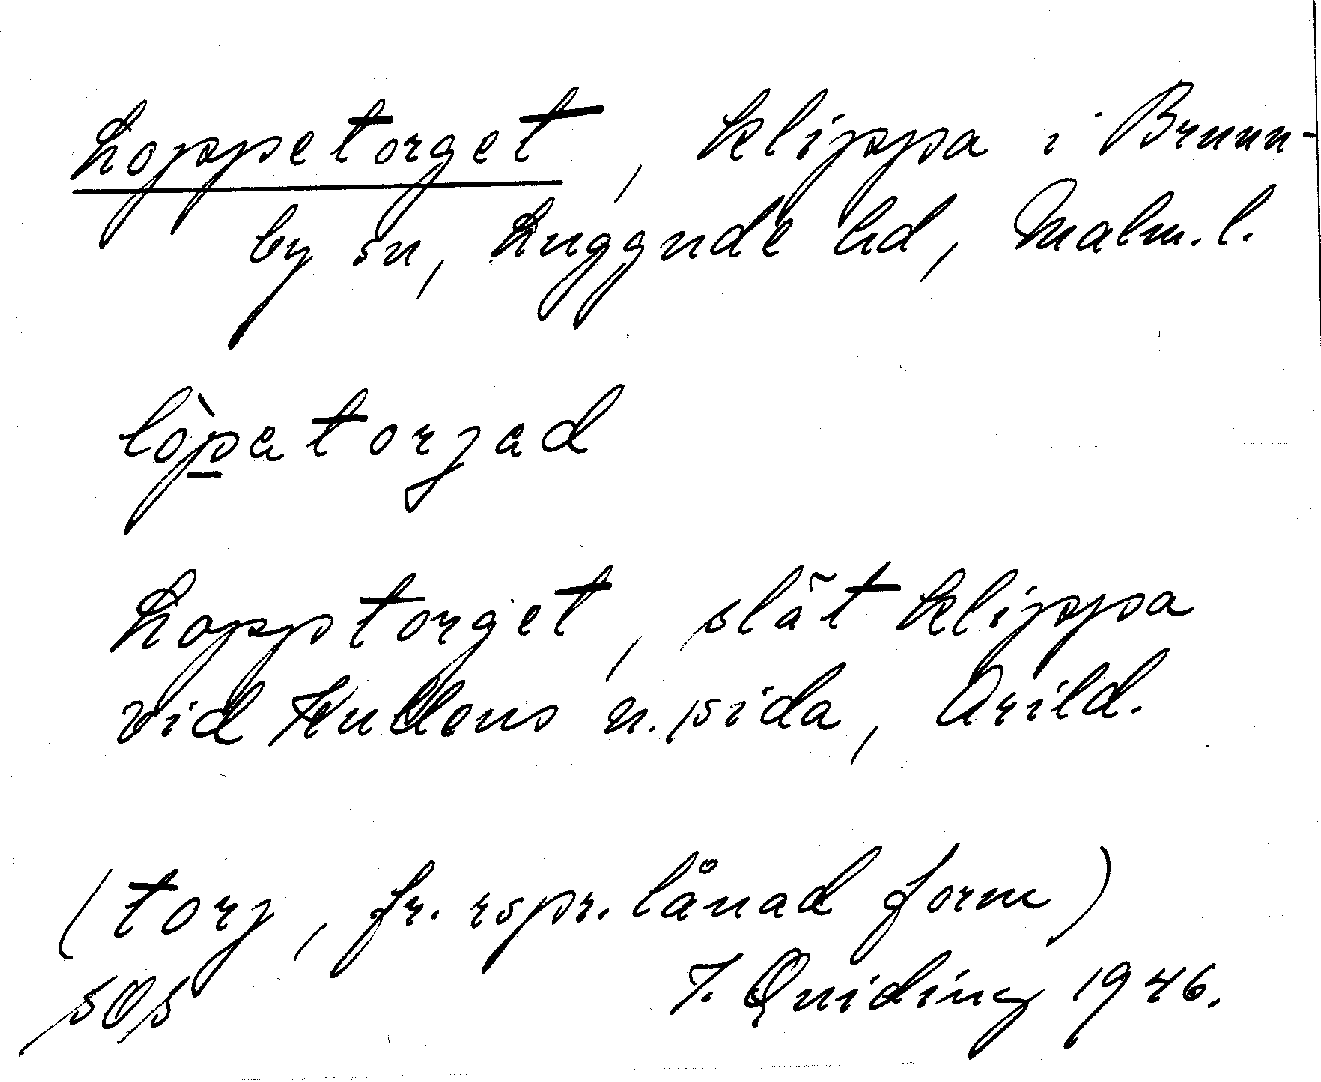 Loppetorget, klippa i Brunn-
by sn, Luggude hd, Malm. l.
lòpatorjad
Lopptorget, slät klippa
vid Kullens n. sida, Arild.
(torj, fr. rspr. lånad form)
SOS T. Quiding 1946.